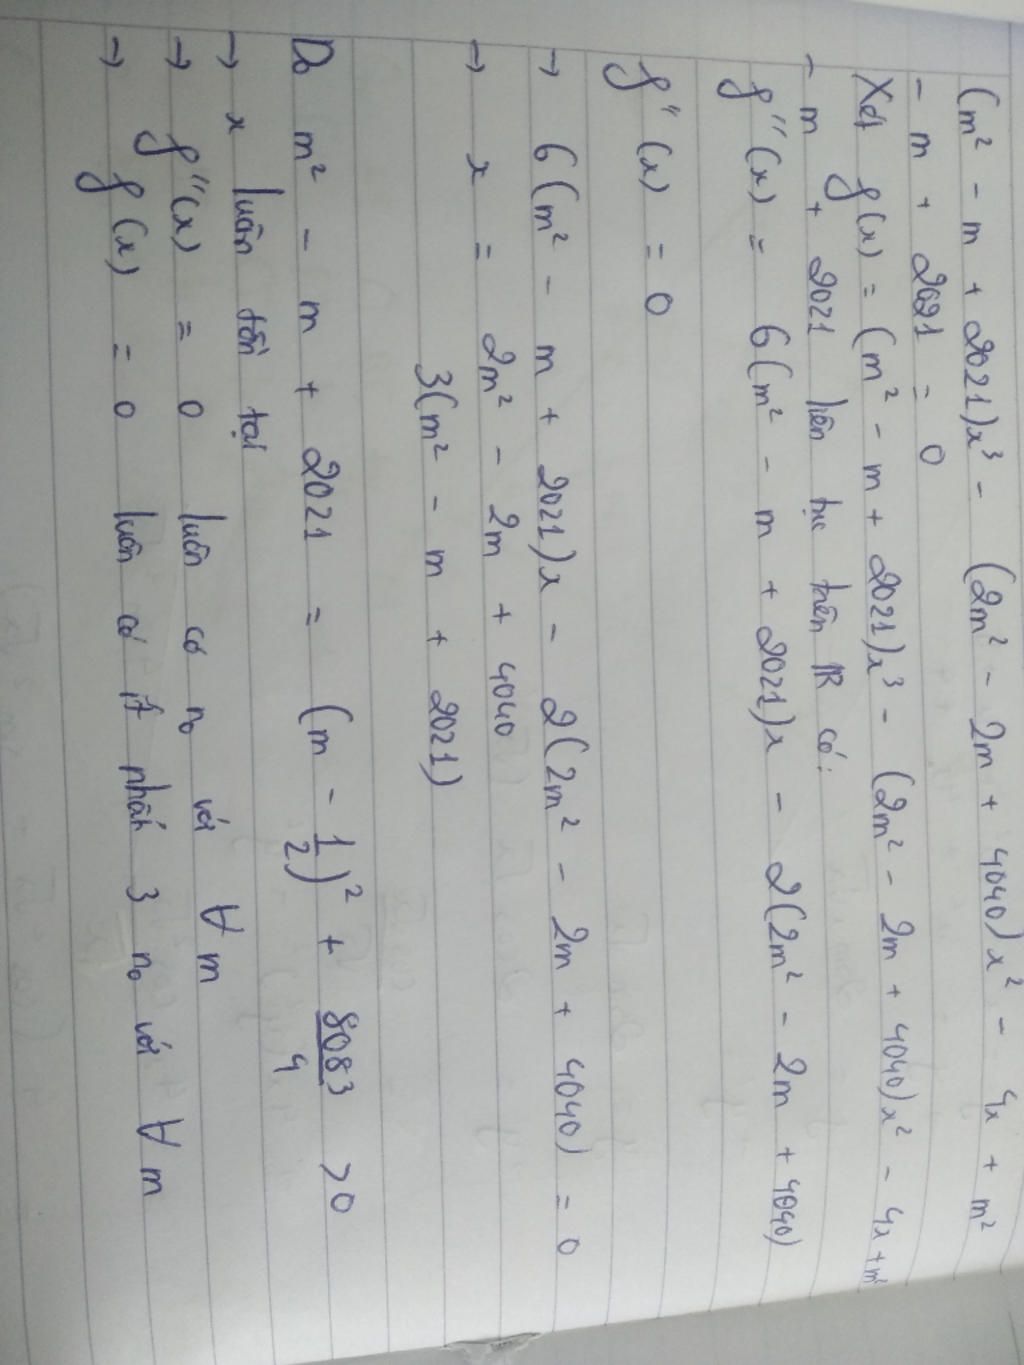 (m² - m + 2021)x³ - (2m² - 2m + 4040)x² - 4x + m²
- m + 2021 = 0
Xét f(x) = (m² - m + 2021)x³ - (2m² - 2m + 4040)x² - 4x + m²
- m + 2021 liên tục trên ℝ có:
f''(x) = 6(m² - m + 2021)x - 2(2m² - 2m + 4040)
f''(x) = 0
→ 6(m² - m + 2021)x - 2(2m² - 2m + 4040) = 0
→ x = 2m² - 2m + 4040
3(m² - m + 2021)
Do m² - m + 2021 = (m - 1/2)² + 8083/4 > 0
→ x luôn tồn tại
→ f''(x) = 0 luôn có n₀ với ∀m
→ f(x) = 0 luôn có ít nhất 3 n₀ với ∀m